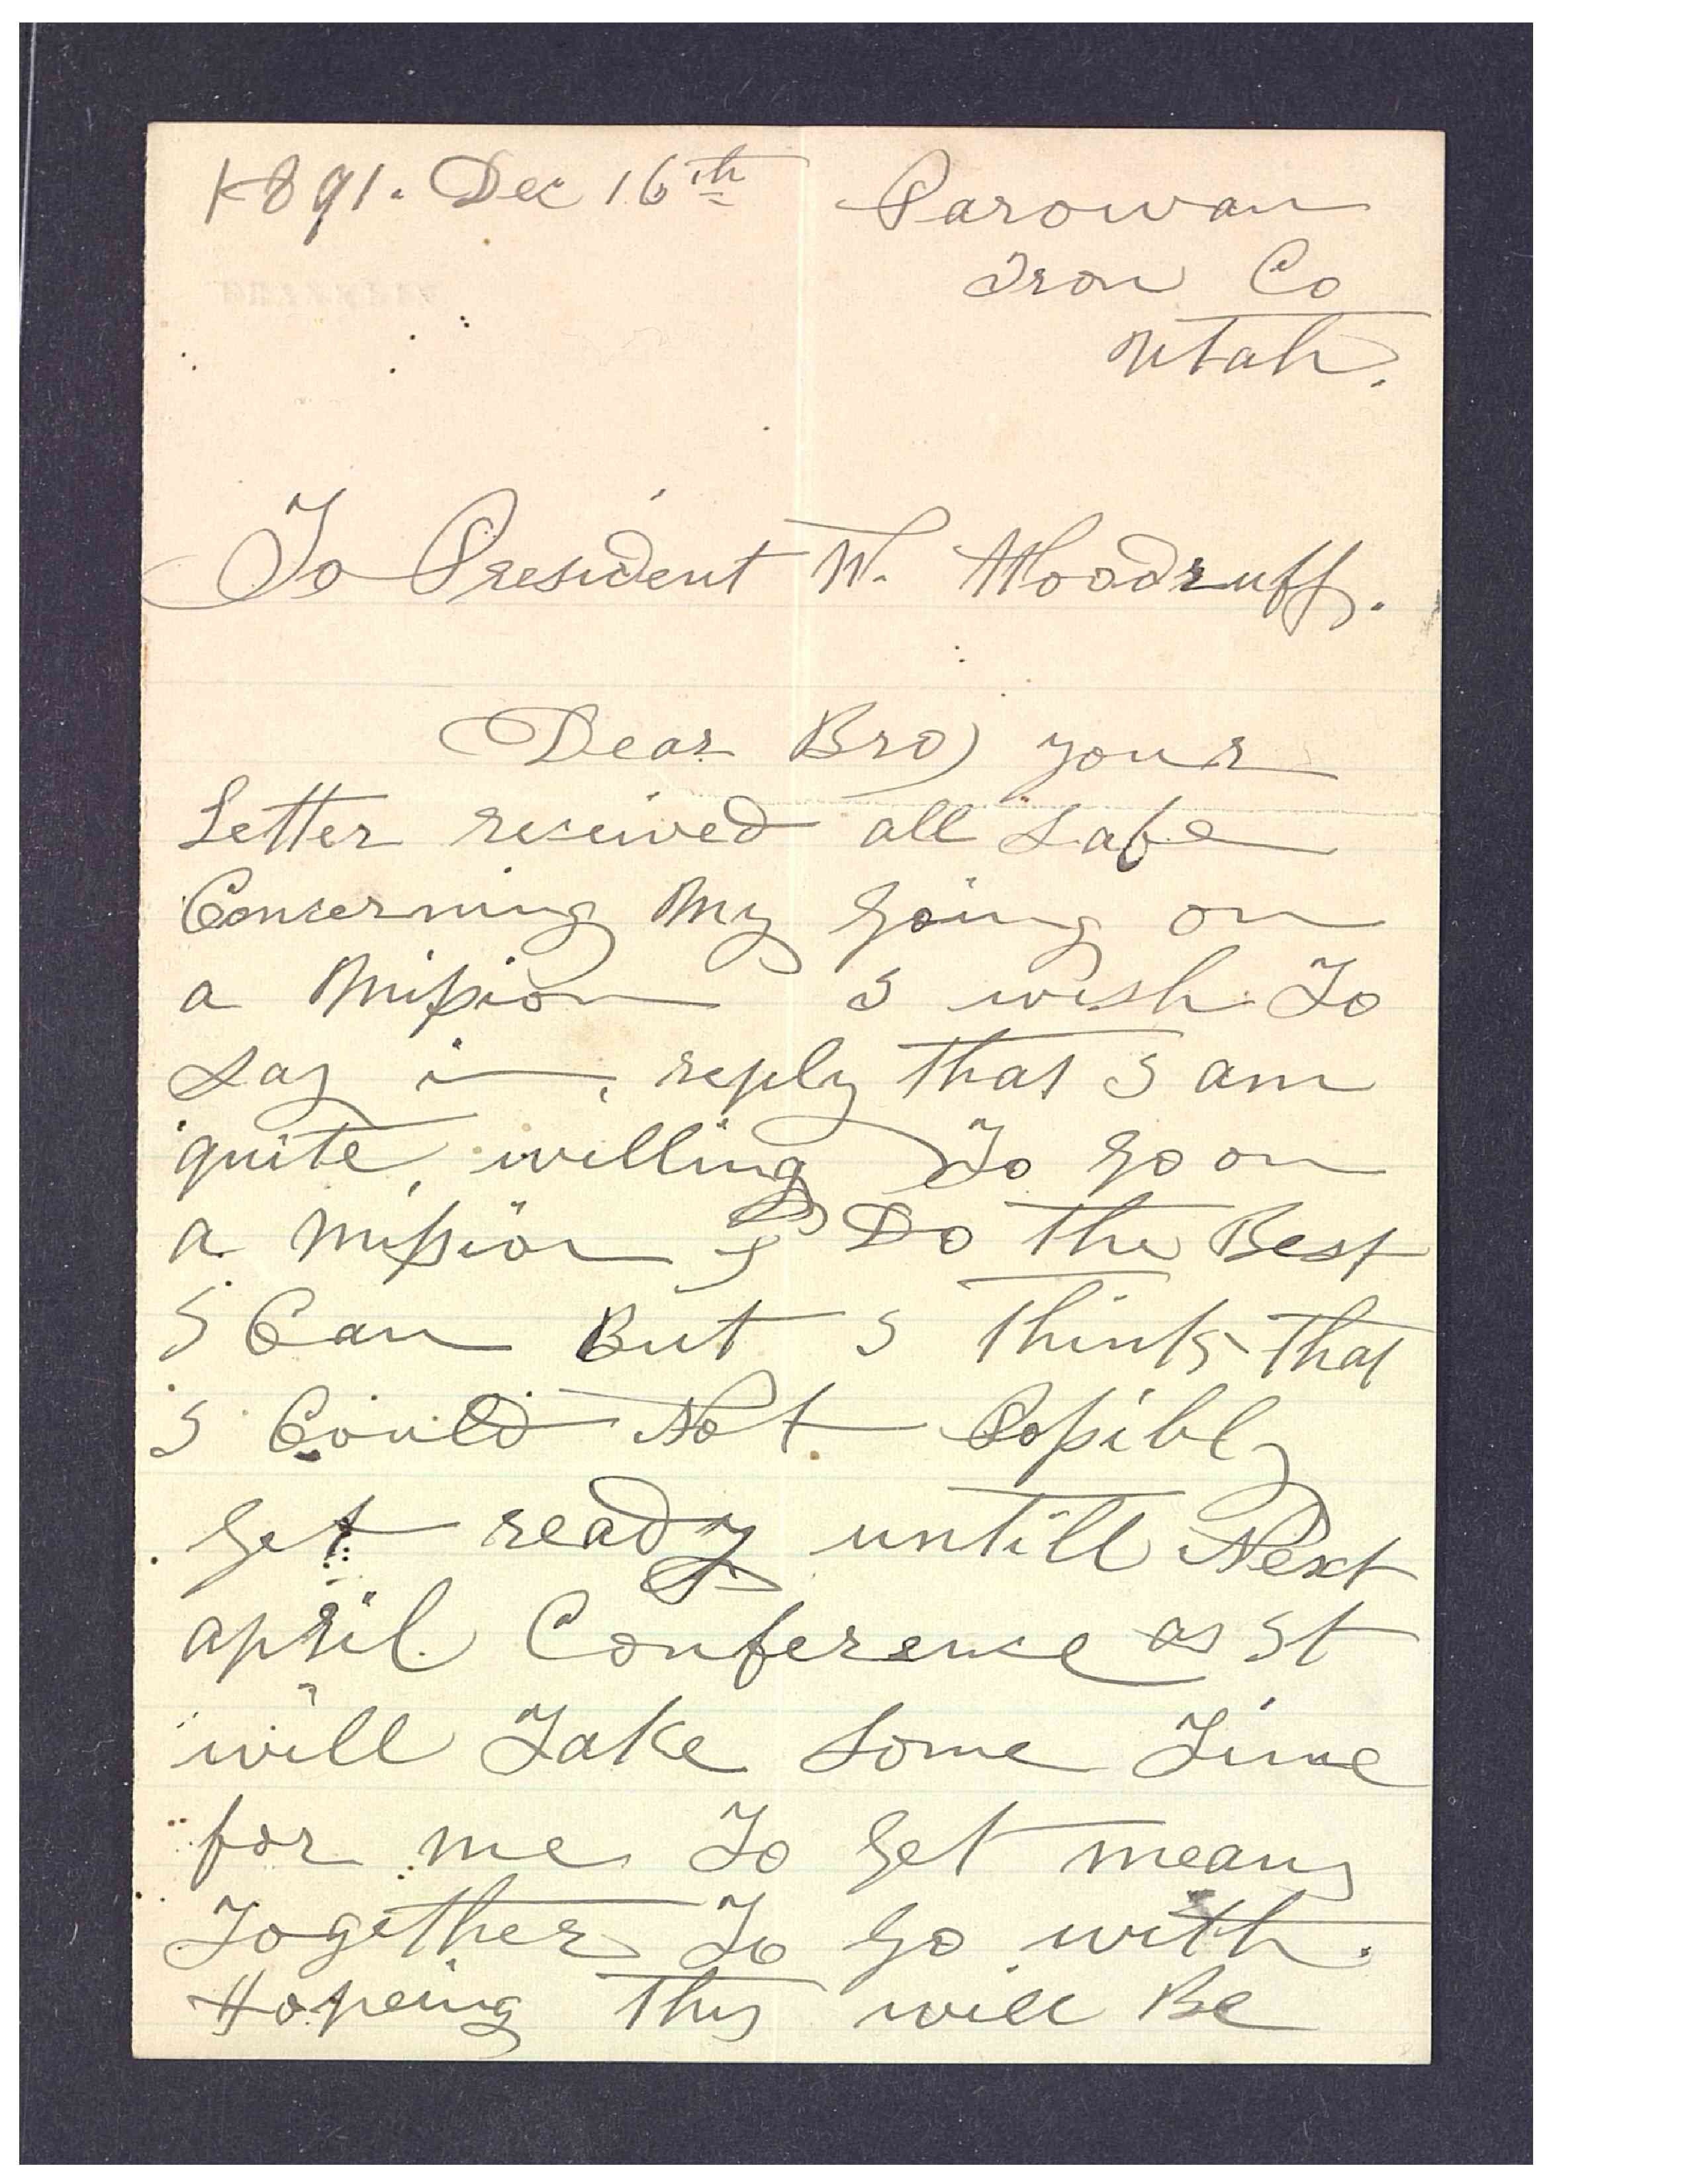 1891. Dec 16th Parowan
Iron Co
Utah.
To President W. Woodruff.
Dear Bro) your
Letter reseived all safe
Conserning My going on
a Mission I wish To
say in reply that I am
quite willing To go on
a mission & Do the Best
I Can But I think that
I Could Not Possibly
get ready untill Next
april Conference as It
will Take some Time
for me To get means
Together To go with.
Hopeing this will Be